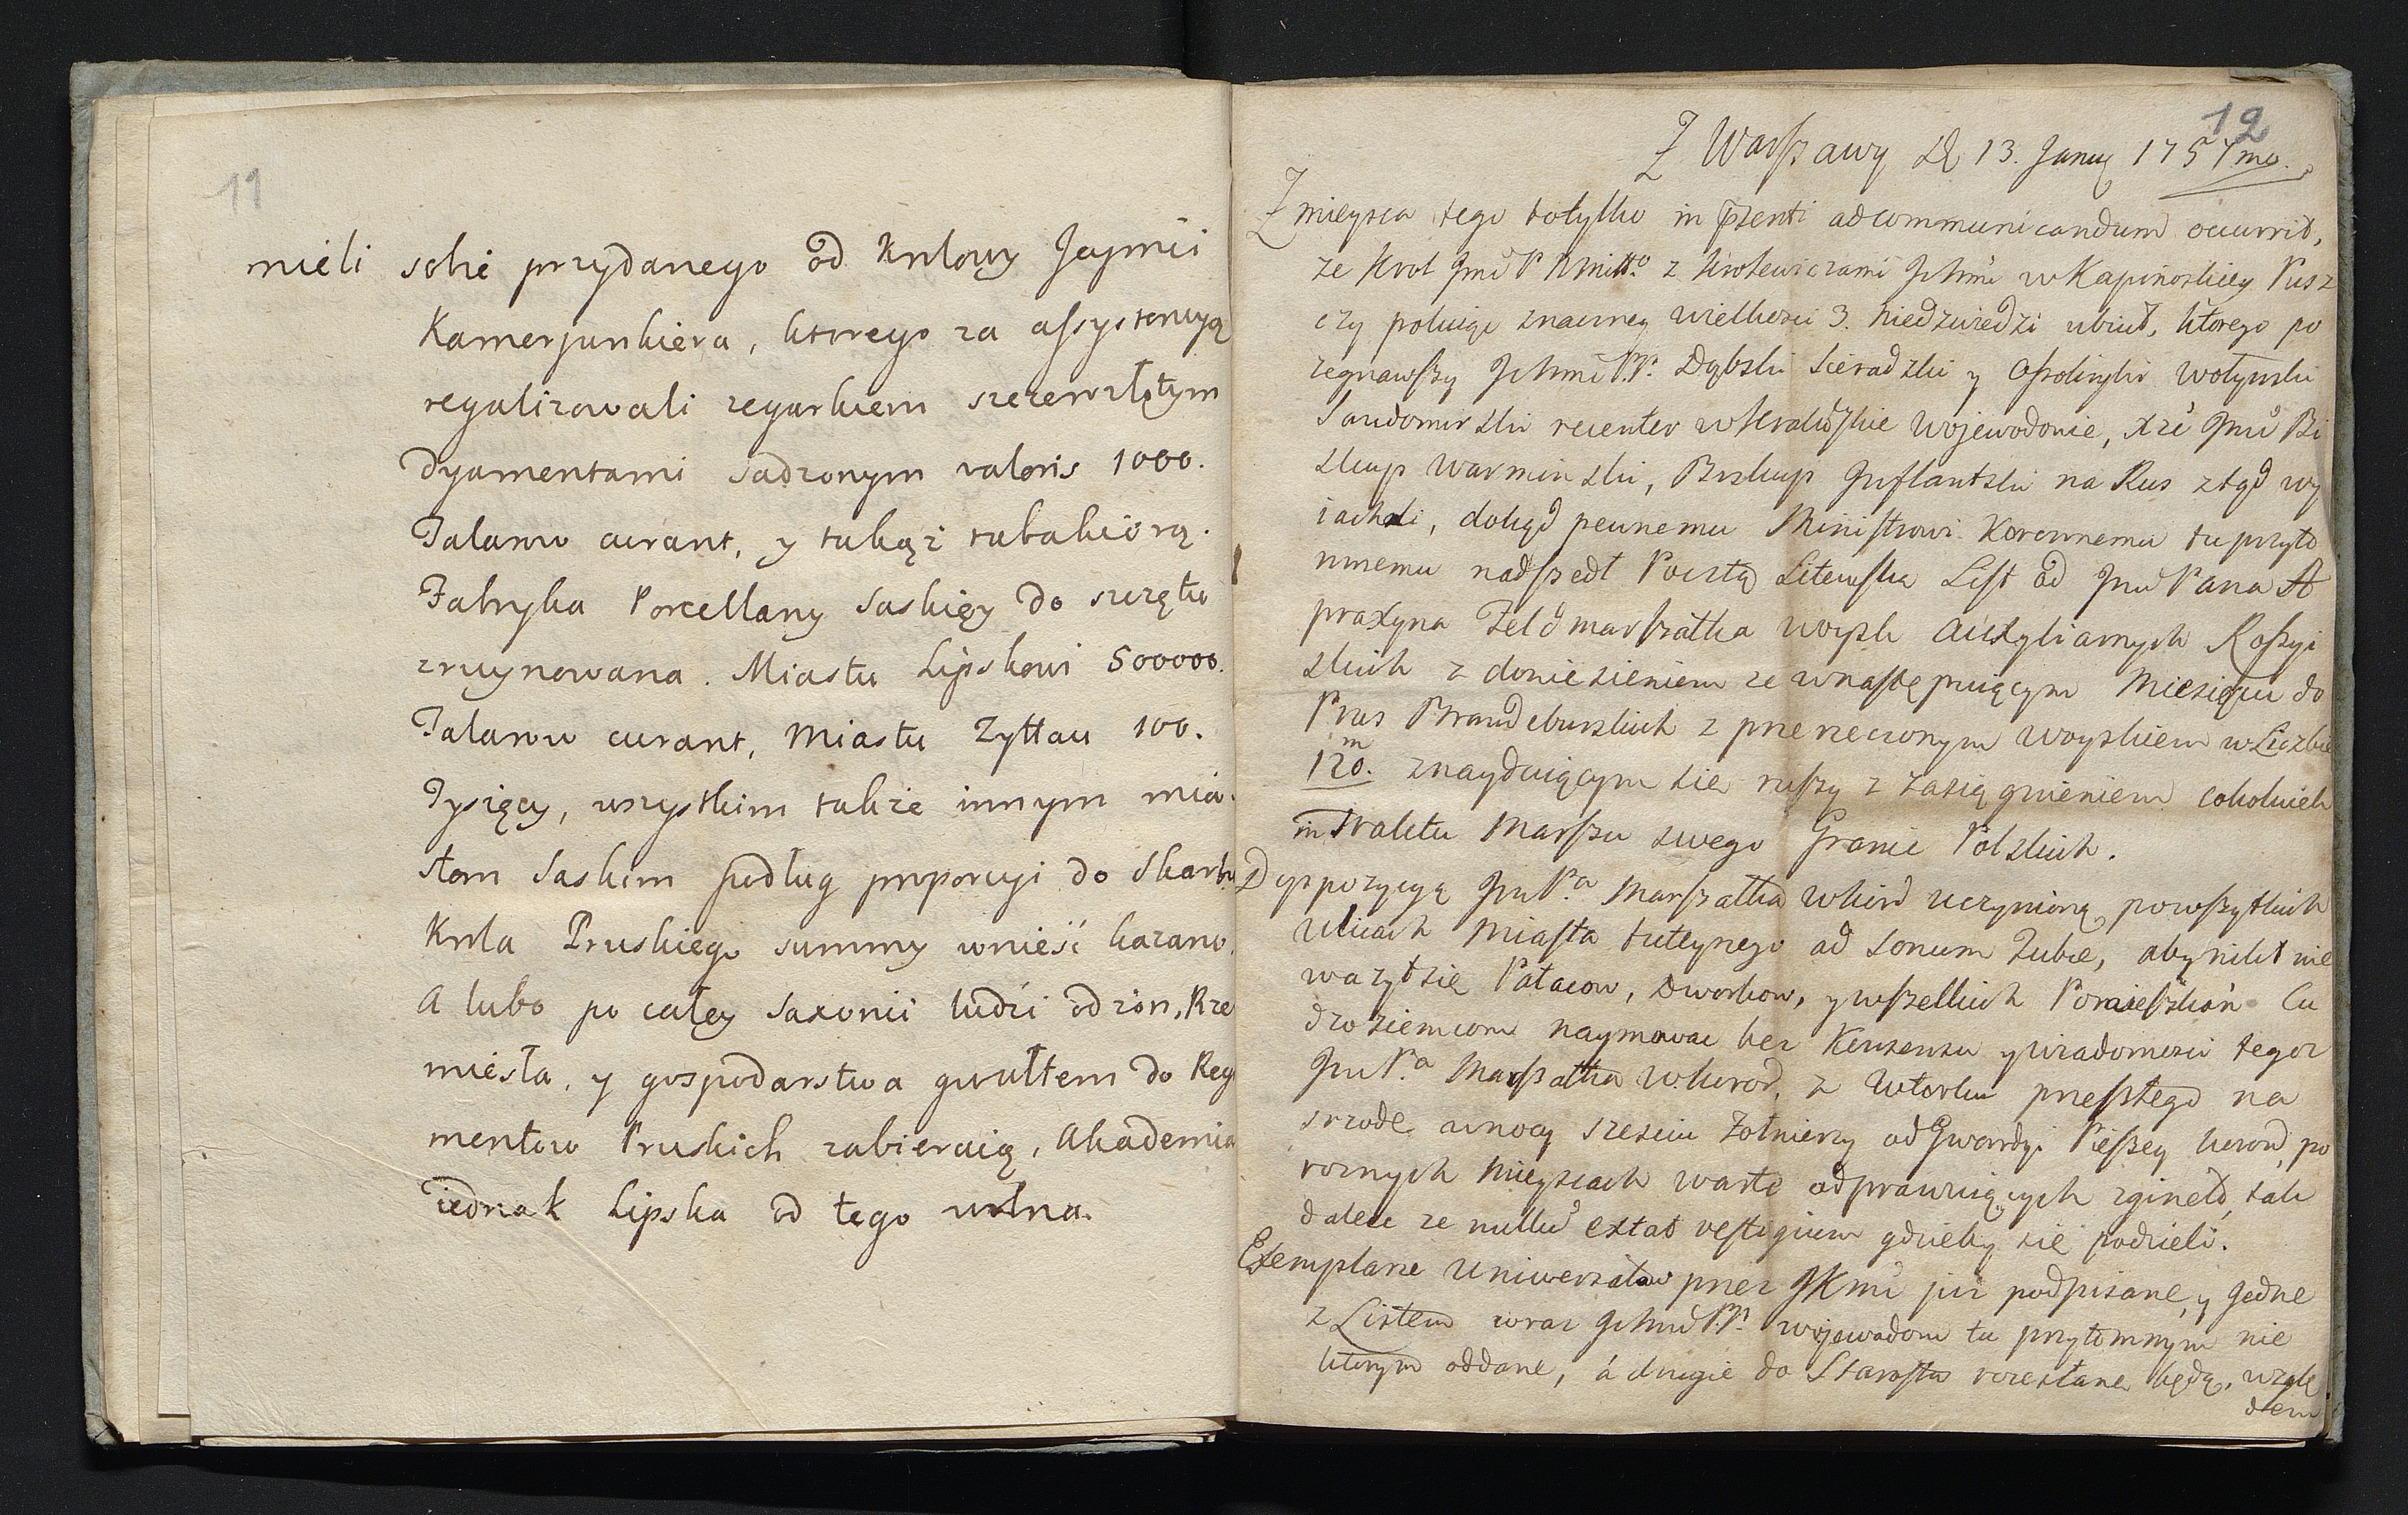 11
mieli sobie przydanego od Krolowy Jeymći
Kamerjunkiera, ktorego za assystencyą
regalizowali zegarkiem szczerozłotym
Dyamentami sadzonym valoris 1000.
Talarow curant, y takąż tabakierą.
Fabryka Porcellany Saskiey do szczętu
zruynowana. Miastu Lipskowi 500000.
Talarow curant, Miastu Zyttau 100.
Tysięcy, wszystkim także innym mia-
stom Saskim podług proporcyi do Skarbu
Krola Pruskiego summy wnieść kazano.
A lubo po całey Saxonii ludźi od żon, Rze
miesła, y gospodarstwa gwałtem do Regi
mentow Pruskich zabieraią, Akademia
iednak Lipska od tego wolna.
12
Z Warszawy D 13. Januarij 1757mo.
Z mieysca tego totylko in pzenti ad communicandum occurrit,
że Krol Jmć P Nmiłł: z Krolewiczami Jchmć w Kapinoskiey Pusz
czy poluiąc znaczney wielkosci 3. Niedzwiedzi ubił, ktorego po
żegnawszy Jchmć P.P. Dąbski Sieradzki y Ossolinski Wołynski
Sandomirski recenter wKraiowskie Wojewodowie, Xże Jmć Bi
skup Warminski, Biskup Jnflantski na Rus ztąd wy
iachali, dokąd pewnemu Ministrowi Koronnemu tu przyto
mnemu nadszedł Pocztą Litewska List od Jmć Pana A
praxyna Feldmarszałka woysk Auxyliarnych Rossyi
skich z doniesieniem ze wnastępuiącym Miesiącu do
Prus Brandeburskich z przerzeczonym woyskiem w Liczbie
120.m znayduiącym się ruszy z zasiągnieniem cokolwiek
in traktu Marszu swego Granic Polskich.
Dyspozycyą JmP.a Marszałka WKord uczynioną, powszytkich
ulicach Miasta tuteyszego ad sonum Tubæ, aby nikt nie
ważył się Pałacow, Dworkow, y wszelkich Pomieszkań Cu
dzoziemcom naymować bez Konsensu y wiadomosci tegoż
JmP.a Marszałka W.Koron, z Wtorku przeszłego na
srzode wnocy szesciu Zołnierzy od Gwardyi Pieszey Koron, po
roznych mieyscach warte odprawuiących zgineło, tak
dalece ze nullum extat vestigium gdzieby się podzieli.
Exemplarze Uniwersałow przez JKmć już podpisane, y jedne
z Listem wraz Jchmć P.P. Wojewodom tu przytomnym nie
ktorym oddane, á drugie do Starostw rozesłane będą, wzglę
dem